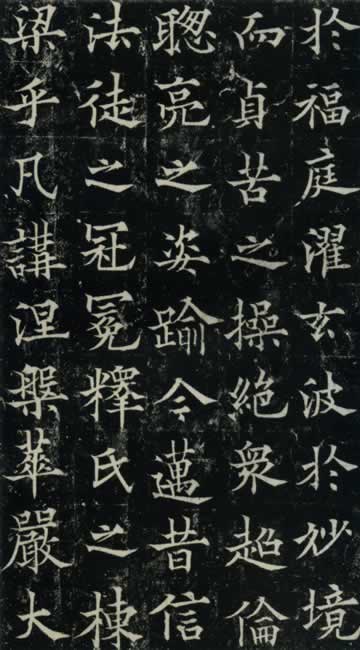 於福庭濯玄波於妙境
而貞苦之操絕衆超倫
聦亮之姿踰今邁昔信
法徒之冠冕釋氏之棟
梁乎凡講涅槃華嚴大